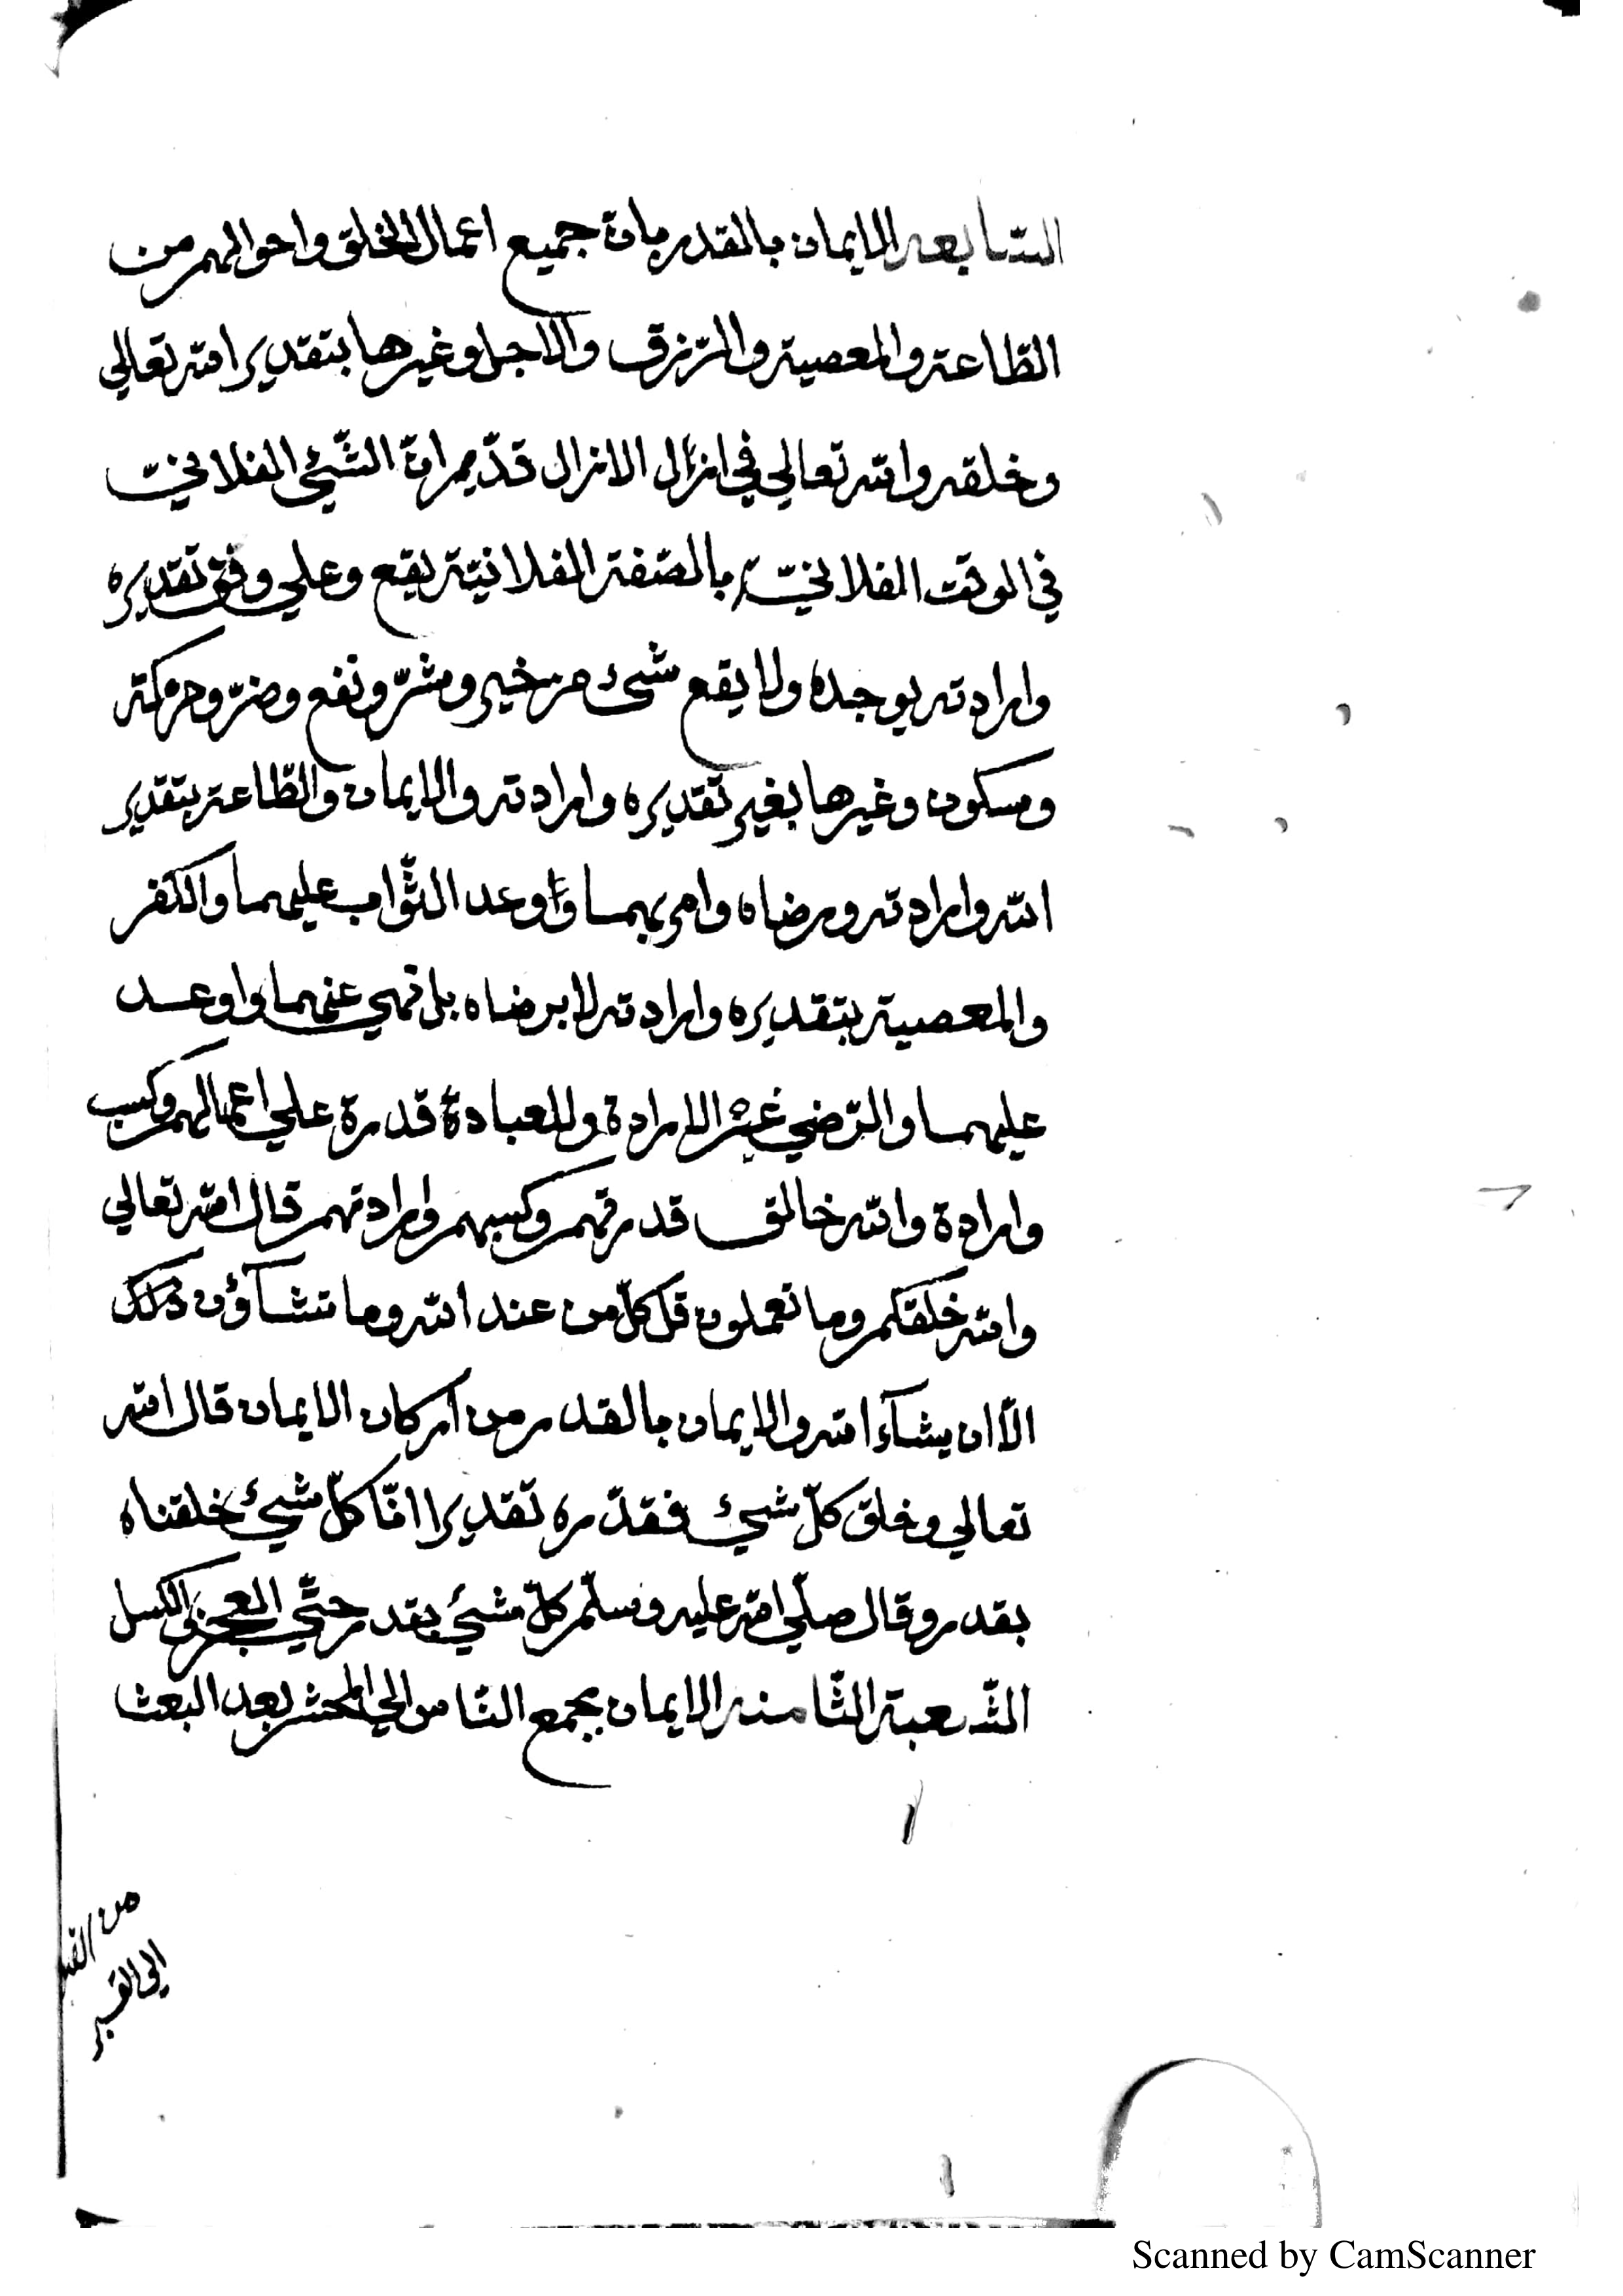 السّابعه الايمان بالقدر بانّ جميع اعمال الخلق واحوالهم من
الطّاعة والمعصية والرّزق والاجل وغيرها بتقدير الله تعالي
وخلقه والله تعالي في ازال الازال قدّر انّ الشّيئ الفلانيّ
في الوقت الفلانيّ بالصّفة الفلانيّة يقع وعلي وفق تقديره
وارادته يوجده ولا يقع شيئ من خير وشرّ ونفع وضرّ وحركة
وسكون وغيرها بغير تقديره وارادته والايمان والطّاعة بتقدير
الله وارادته ورضاه وامر بهما واوعد الثّواب عليهما والكفر
والمعصية بتقديره وارادته لا برضاه بل نهي عنهما واوعد
عليهما والرّضي غير الارادة وللعبادة قدرة علي اعمالهم وكسب
وارادة والله خالق قدرتهم وكسبهم وارادتهم قال الله تعالي
والله خلقكم وما تعملون قل كلّ من عند الله وما تشآؤن ذلك
الّا ان يشآء الله والايمان بالقدر من اركان الايمان قال الله
تعالي وخلق كلّ شيئ فقدّره تقديرا انّا كلّ شيئ خلقناه
بقدر وقال صلّي الله عليه وسلّم كلّ شيئ بقدر حتّي العجز والكسل
الشّعبة الثّامنه الايمان بجمع النّاس الي المحشر بعد البعث
من القبر
الى القبر
Scanned by CamScanner